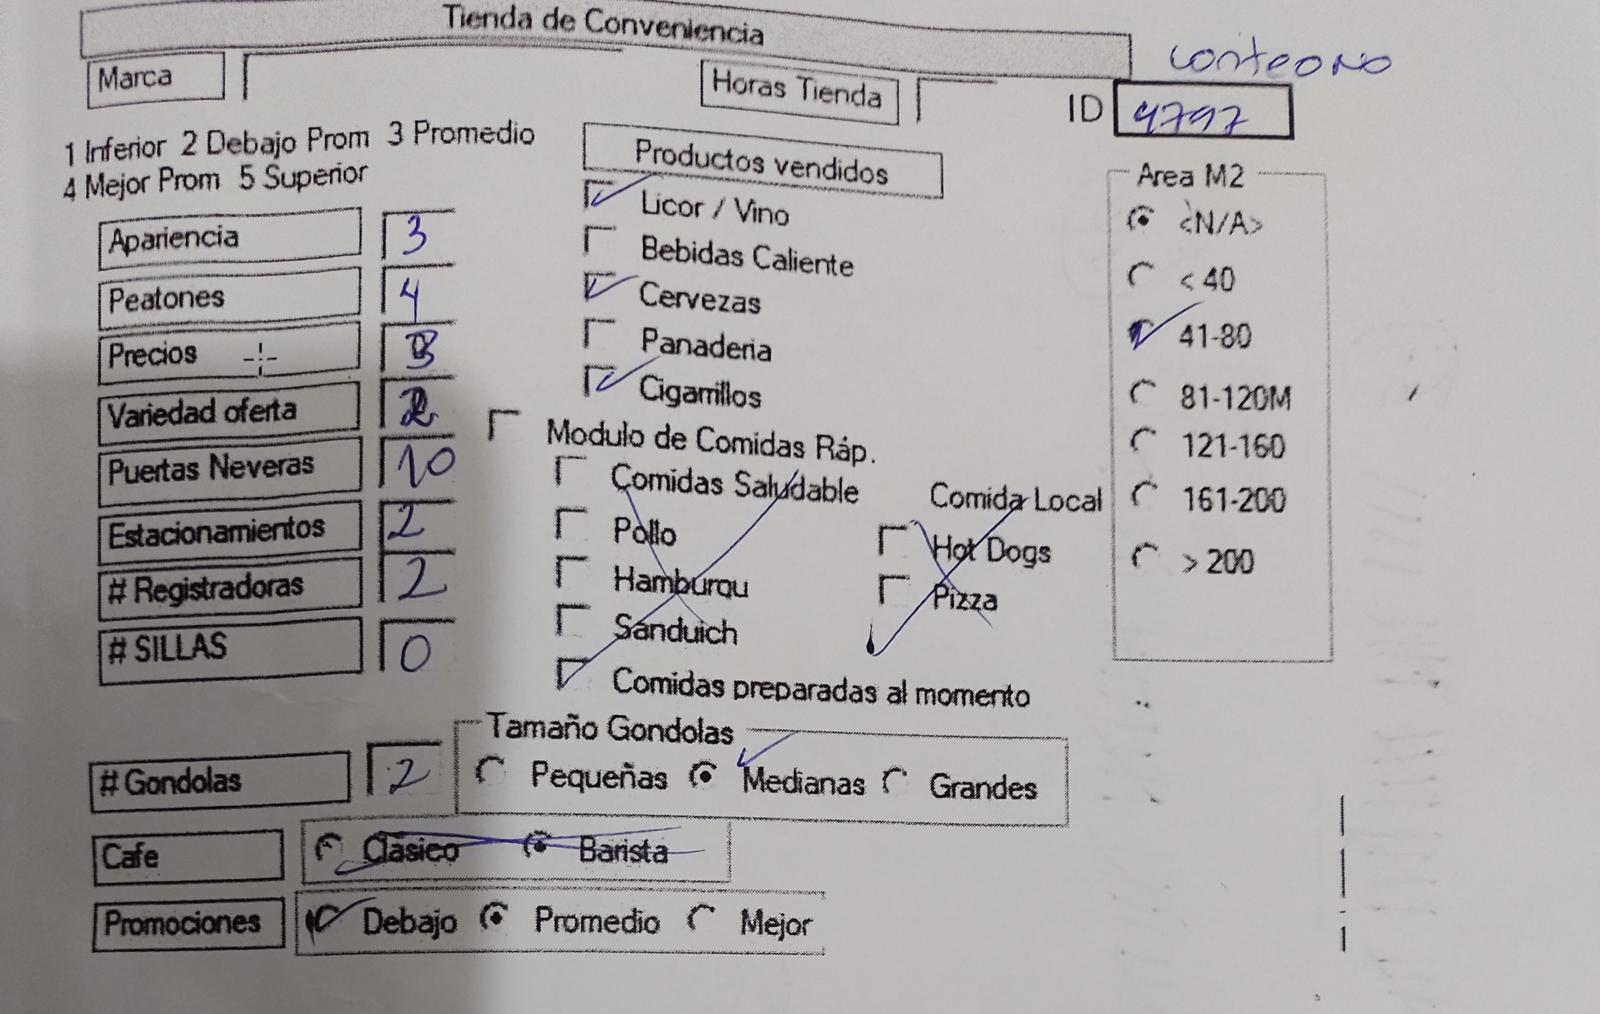 Tienda de Conveniencia
Marca
Horas Tienda
ID 4797
1 Inferior 2 Debajo Prom 3 Promedio
4 Mejor Prom 5 Superior
Productos vendidos
Area M2
Licor / Vino
<N/A>
Apariencia 3
Bebidas Caliente
< 40
Peatones 4
Cervezas
41-80
Precios
Panaderia
Variedad oferta 2
Cigarrillos
81-120M
Puertas Neveras 10
Modulo de Comidas Ráp.
121-160
Comidas Saludable
Comida Local
161-200
Estacionamientos 2
Pollo
Hot Dogs
> 200
# Registradoras 2
Hamburqu
Pizza
# SILLAS 0
Sanduich
Comidas preparadas al momento
Tamaño Gondolas
# Gondolas 2
Pequeñas Medianas Grandes
Cafe
Clásico Barista
Promociones
Debajo Promedio Mejor